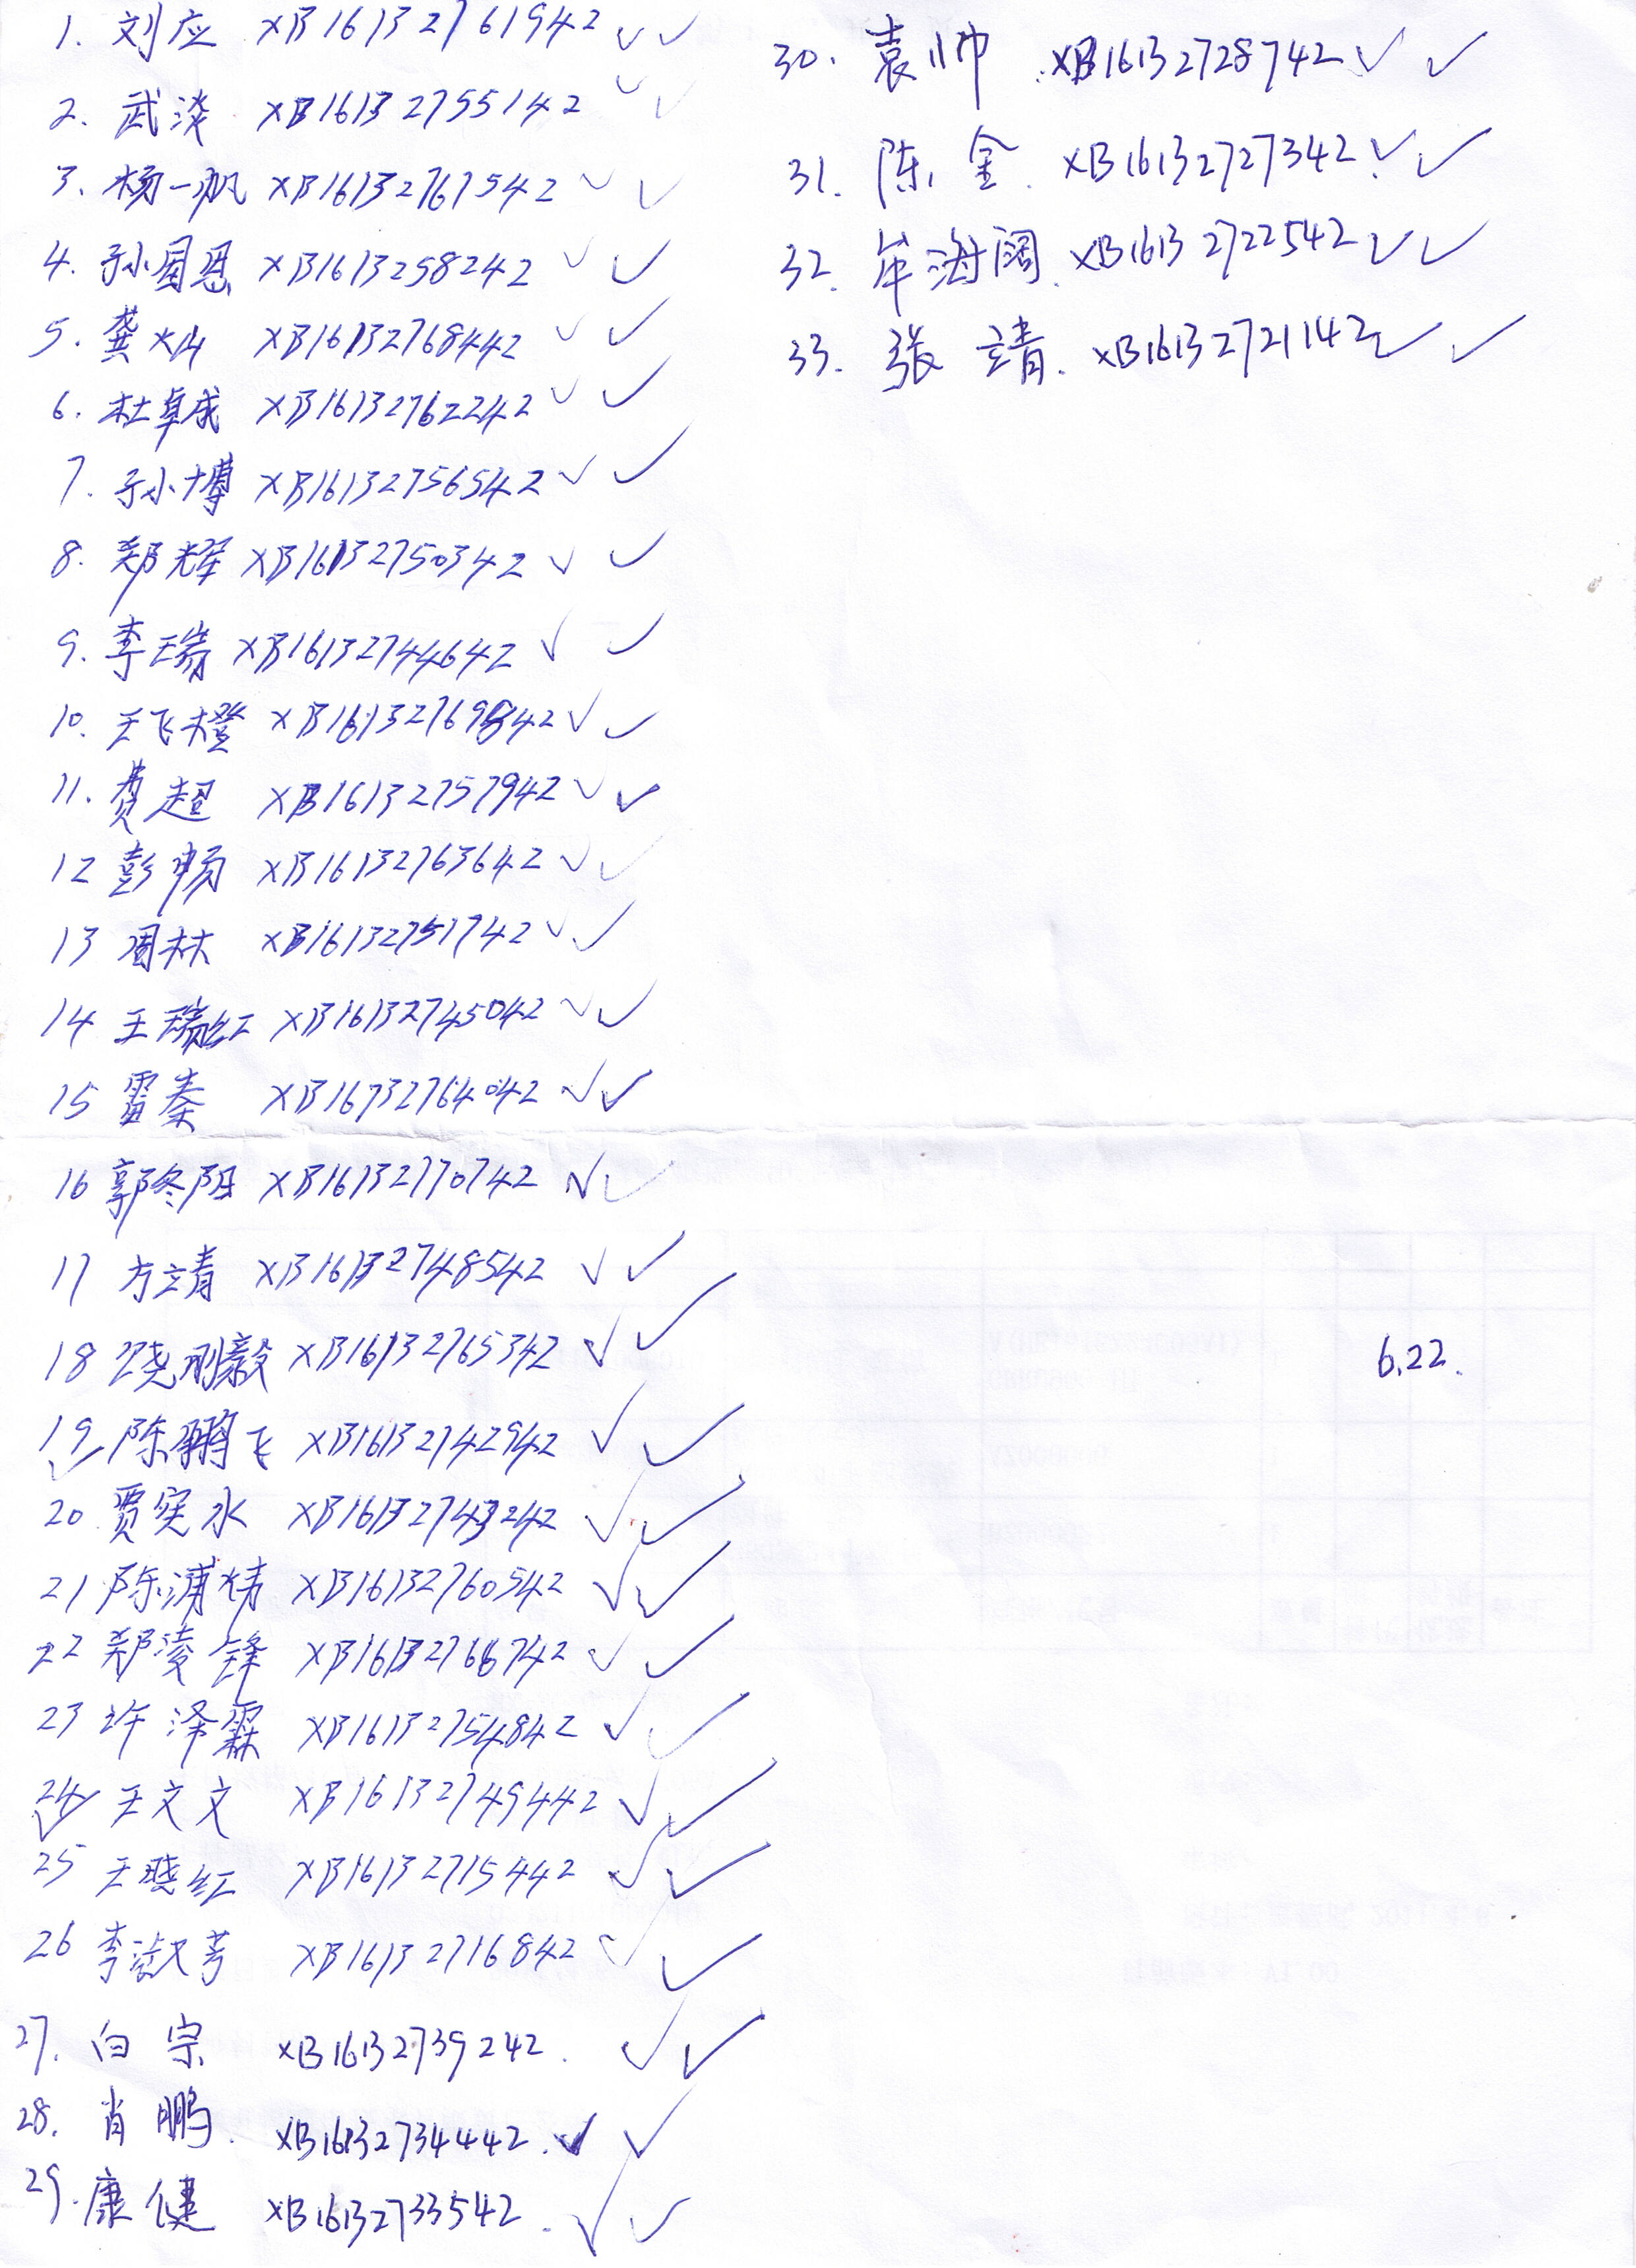 1. 刘应 XB16132761942 ✓ ✓
2. 武淡 XB16132755142 ✓ ✓
3. 杨一帆 XB16132767542 ✓ ✓
4. 孙国恩 XB1613258242 ✓ ✓
5. 龚火山 XB16132768442 ✓ ✓
6. 杜卓成 XB16132762242 ✓ ✓
7. 孙博 XB16132756542 ✓ ✓
8. 郑辉 XB16132750342 ✓ ✓
9. 李瑞 XB16132744642 ✓ ✓
10. 王飞橙 XB16132769842 ✓ ✓
11. 费超 XB16132757942 ✓ ✓
12 彭畅 XB16132763642 ✓ ✓
13 周林 XB16132751742 ✓ ✓
14 王瑞红 XB16132745042 ✓ ✓
15 雷秦 XB16732764042 ✓ ✓
16 郭冬阳 XB16132770742 ✓ ✓
17 方靖 XB16132748542 ✓ ✓
18 饶刚毅 XB16132765342 ✓ ✓
19 陈鹏飞 XB16132742942 ✓ ✓
20 贾实水 XB16132743242 ✓ ✓
21 陈浦炜 XB16132760542 ✓ ✓
22 郑凌锋 XB16132766742 ✓ ✓
23 许泽霖 XB16132754842 ✓ ✓
24 王文文 XB16132749442 ✓ ✓
25 王晓红 XB16132715442 ✓ ✓
26 李淑芳 XB16132716842 ✓ ✓
27. 白宗 XB16132739242. ✓ ✓
28. 肖鹏. XB16132734442. ✓ ✓
29. 康健 XB16132733542. ✓ ✓
30. 袁帅 XB16132728742 ✓ ✓
31. 陈金. XB16132727342. ✓ ✓
32. 牟海阔. XB16132722542 ✓ ✓
33. 张靖. XB16132721142 ✓ ✓
6.22.